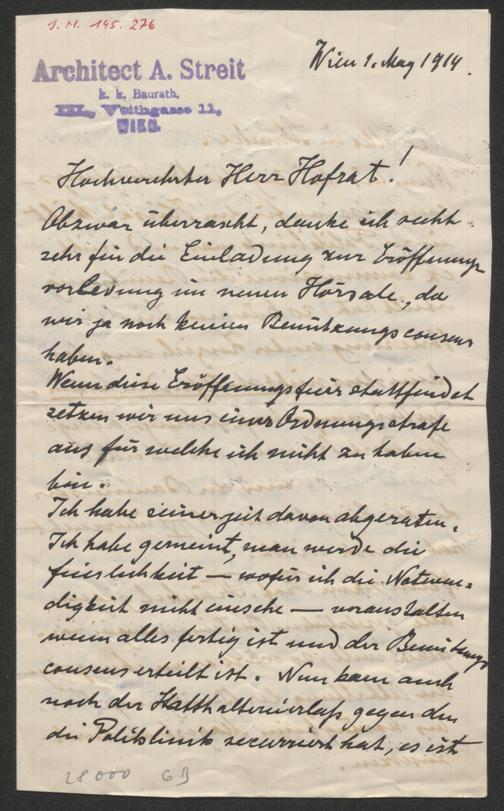 I.N. 195.276
Architect A. Streit
k. k. Baurath.
III., Veithgasse 11,
WIEN.
Wien 1. May 1914.
Hochverehrter Herr Hofrat!
Obzwar überrascht, danke ich recht
sehr für die Einladung zur Eröffnungs
vorlesung im neuen Hörsale, da
wir ja noch keinen Benützungsconsens
haben.
Wenn diese Eröffnungsfeier stattfindet
setzen wir uns einer Ordnungsstrafe
aus für welche ich nicht zu haben
bin.
Ich habe seinerzeit davon abgeraten.
Ich habe gemeint, man werde die
feierlichkeit — wofür ich die Notwen-
digkeit nicht einsehe — veranstalten
wenn alles fertig ist und der Benützungs
consens erteilt ist. Nun kam auch
noch der Statthaltereierlaß gegen den
die Poliklinik recurriert hat, es ist
28000 GB